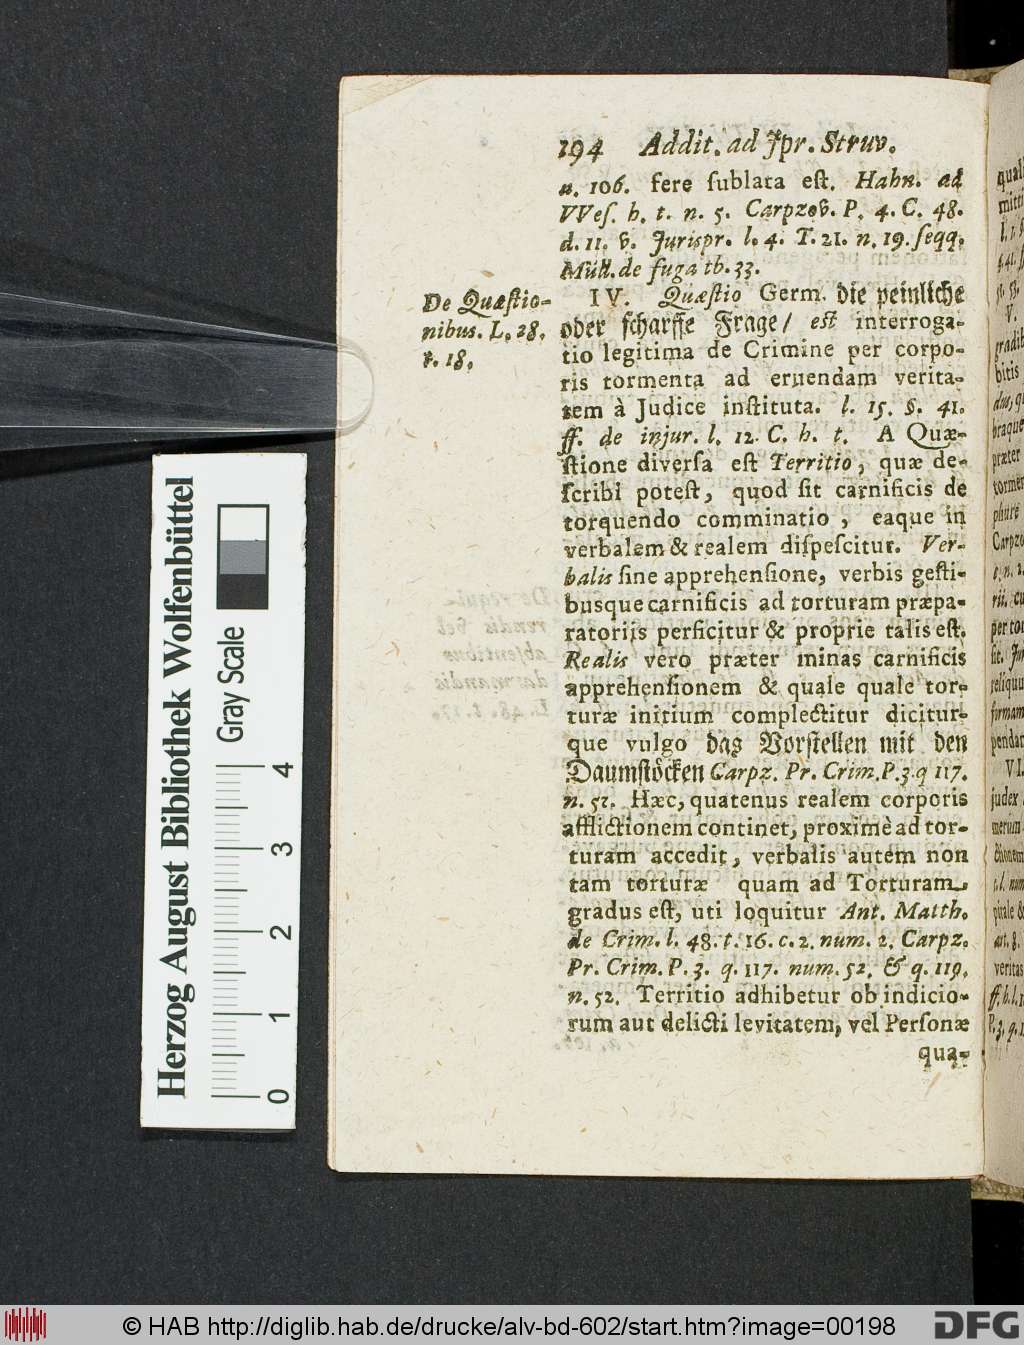 194 Addit. ad Jpr. Struv.
n. 106. fere ſublata eſt. Hahn. ad
VVeſ. h. t. n. 5. Carpzov. P. 4. C. 48.
d. 11. v. Jurispr. l. 4. T. 21. n. 19. ſeqq.
Müll. de fuga th. 33.
De Quæſtio-
nibus. L. 28.
t. 18.
IV. Quæſtio Germ. die peinliche
oder ſcharffe Frage / eſt interroga-
tio legitima de Crimine per corpo-
ris tormenta ad eruendam verita-
tem à Judice inſtituta. l. 15. §. 41.
ff. de injur. l. 12. C. h. t. A Quæ-
ſtione diverſa eſt Territio, quæ de-
ſcribi poteſt, quod ſit carnificis de
torquendo comminatio, eaque in
verbalem & realem diſpeſcitur. Ver-
balis ſine apprehenſione, verbis geſti-
busque carnificis ad torturam præpa-
ratoriis perficitur & proprie talis eſt.
Realis vero præter minas carnificis
apprehenſionem & quale quale tor-
turæ initium complectitur dicitur-
que vulgo das Vorſtellen mit den
Daumſtöcken Carpz. Pr. Crim. P. 3. q 117.
n. 51. Hæc, quatenus realem corporis
afflictionem continet, proximè ad tor-
turam accedit, verbalis autem non
tam torturæ quam ad Torturam
gradus eſt, uti loquitur Ant. Matth.
de Crim. l. 48. t. 16. c. 2. num. 2. Carpz.
Pr. Crim. P. 3. q. 117. num. 52. & q. 119.
n. 52. Territio adhibetur ob indicio-
rum aut delicti levitatem, vel Perſonæ
qua-
Herzog August Bibliothek Wolfenbüttel
Gray Scale
0 1 2 3 4
© HAB http://diglib.hab.de/drucke/alv-bd-602/start.htm?image=00198
DFG